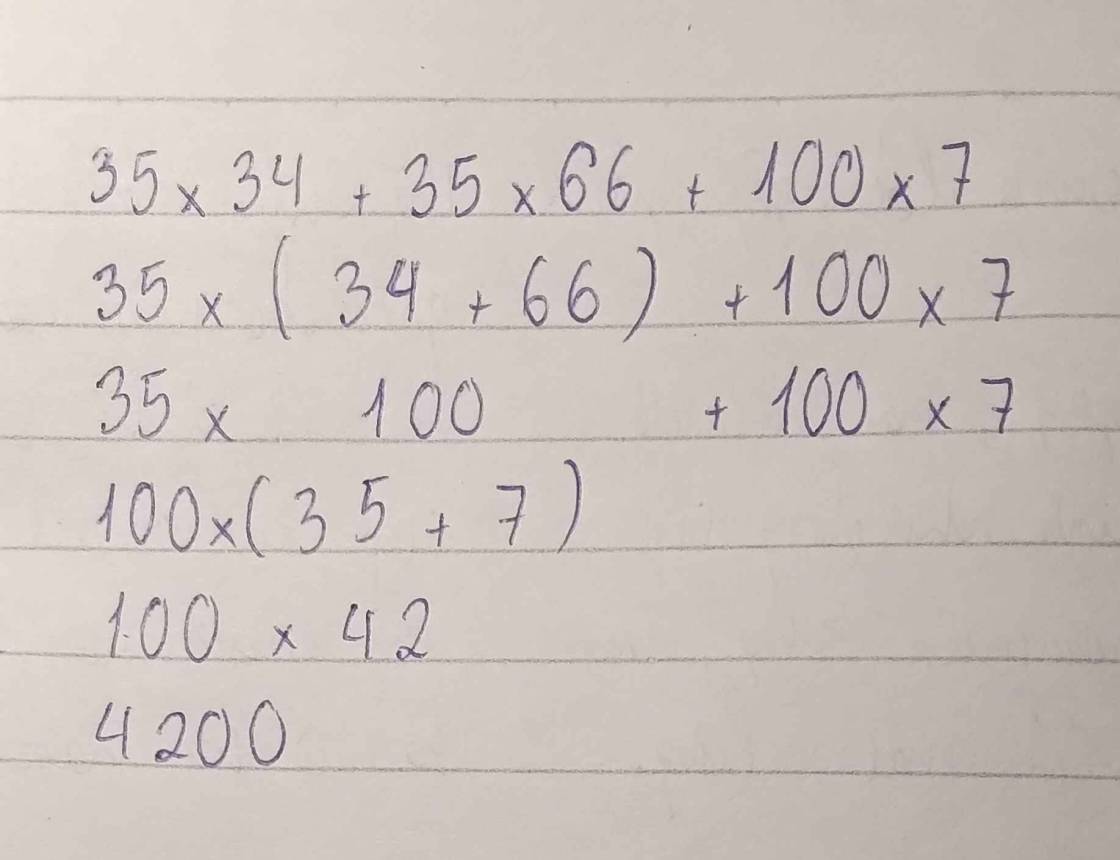 35 x 34 + 35 x 66 + 100 x 7
35 x ( 34 + 66 ) + 100 x 7
35 x 100 + 100 x 7
100 x ( 35 + 7 )
100 x 42
4200